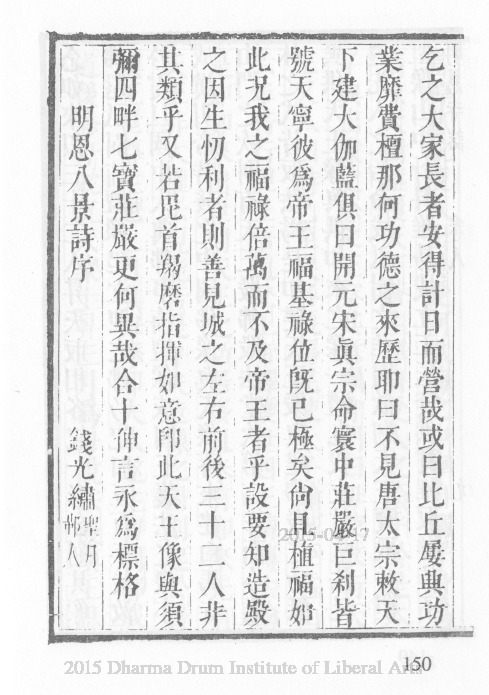 乞之大家長者安得計日而營哉或曰比丘屢興功
業靡費檀那何功德之來歷耶曰不見唐太宗敕天
下建大伽藍俱曰開元宋眞宗命寰中莊嚴巨刹皆
號天寧彼爲帝王福基祿位旣已極矣尙且植福如
此况我之福祿倍萬而不及帝王者乎設要知造殿
之因生忉利者則善見城之左右前後三十二人非
其類乎又若毘首羯磨指揮如意卽此天王像與須
彌四畔七寶莊嚴更何異哉合十伸言永爲標格
明恩八景詩序 錢光繡聖月邨人
2015-04-17
150
2015 Dharma Drum Institute of Liberal Arts